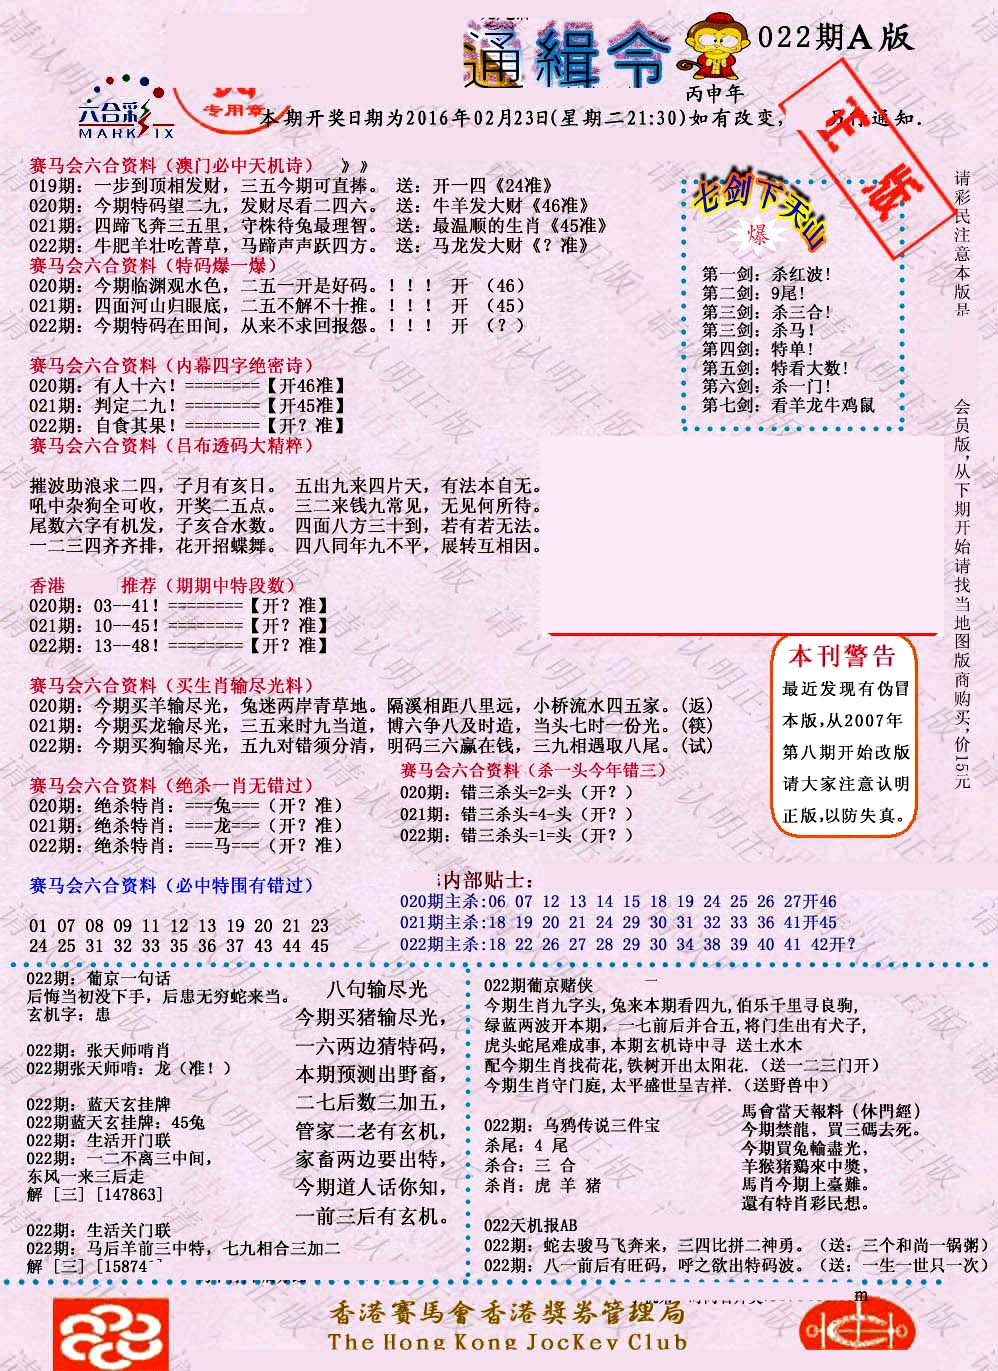 通緝令
022期A版
丙申年
六合彩
MARK SIX
专用章
正版
本期开奖日期为2016年02月23日(星期二21:30)如有改变,
通知.
赛马会六合资料（澳门必中天机诗） 》》
019期：一步到顶相发财，三五今期可直捧。 送：开一四《24准》
020期：今期特码望二九，发财尽看二四六。 送：牛羊发大财《46准》
021期：四蹄飞奔三五里，守株待兔最理智。 送：最温顺的生肖《45准》
022期：牛肥羊壮吃菁草，马蹄声声跃四方。 送：马龙发大财《？准》
赛马会六合资料（特码爆一爆）
020期：今期临渊观水色，二五一开是好码。！！！ 开 （46）
021期：四面河山归眼底，二五不解不十推。！！！ 开 （45）
022期：今期特码在田间，从来不求回报怨。！！！ 开 （？）
赛马会六合资料（内幕四字绝密诗）
020期：有人十六！========【开46准】
021期：判定二九！========【开45准】
022期：自食其果！========【开？准】
赛马会六合资料（吕布透码大精粹）
摧波助浪求二四，子月有亥日。 五出九来四片天，有法本自无。
吼中杂狗全可收，开奖二五点。 三二来钱九常见，无见何所待。
尾数六字有机发，子亥合水数。 四面八方三十到，若有若无法。
一二三四齐齐排，花开招蝶舞。 四八同年九不平，展转互相因。
香港 推荐（期期中特段数）
020期：03--41！========【开？准】
021期：10--45！========【开？准】
022期：13--48！========【开？准】
赛马会六合资料（买生肖输尽光料）
020期：今期买羊输尽光，兔迷两岸青草地。隔溪相距八里远，小桥流水四五家。(返)
021期：今期买龙输尽光，三五来时九当道，博六争八及时造，当头七时一份光。(筷)
022期：今期买狗输尽光，五九对错须分清，明码三六赢在钱，三九相遇取八尾。(试)
赛马会六合资料（绝杀一肖无错过）
020期：绝杀特肖：===兔===（开？准）
021期：绝杀特肖：===龙===（开？准）
022期：绝杀特肖：===马===（开？准）
赛马会六合资料（杀一头今年错三）
020期：错三杀头=2=头（开？）
021期：错三杀头=4-头（开？）
022期：错三杀头=1=头（开？）
赛马会六合资料（必中特围有错过）
01 07 08 09 11 12 13 19 20 21 23
24 25 31 32 33 35 36 37 43 44 45
内部贴士：
020期主杀:06 07 12 13 14 15 18 19 24 25 26 27开46
021期主杀:18 19 20 21 24 29 30 31 32 33 36 41开45
022期主杀:18 22 26 27 28 29 30 34 38 39 40 41 42开？
七剑下天山
爆
第一剑：杀红波！
第二剑：9尾！
第三剑：杀三合！
第三剑：杀马！
第四剑：特单！
第五剑：特看大数！
第六剑：杀一门！
第七剑：看羊龙牛鸡鼠
请彩民注意本版是
会员版,从下期开始请找当地图版商购买,价15元
本刊警告
最近发现有伪冒
本版,从2007年
第八期开始改版
请大家注意认明
正版,以防失真。
022期：葡京一句话
后悔当初没下手，后患无穷蛇来当。
玄机字：患
022期：张天师啃肖
022期张天师啃：龙（准！）
022期：蓝天玄挂牌
022期蓝天玄挂牌：45兔
022期：生活开门联
022期：一二不离三中间，
东风一来三后走
解 [三] [147863]
022期：生活关门联
022期：马后羊前三中特，七九相合三加二
解 [三] [15874
八句输尽光
今期买猪输尽光，
一六两边猜特码，
本期预测出野畜，
二七后数三加五，
管家二老有玄机，
家畜两边要出特，
今期道人话你知，
一前三后有玄机。
022期葡京赌侠
今期生肖九字头,兔来本期看四九,伯乐千里寻良驹,
绿蓝两波开本期，一七前后并合五,将门生出有犬子,
虎头蛇尾难成事,本期玄机诗中寻 送土水木
配今期生肖找荷花,铁树开出太阳花.（送一二三门开）
今期生肖守门庭,太平盛世呈吉祥.（送野兽中）
022期：乌鸦传说三件宝
杀尾：4 尾
杀合：三 合
杀肖：虎 羊 猪
馬會當天報料（休門經）
今期禁龍，買三碼去死。
今期買兔輸盡光，
羊猴猪鷄來中獎，
馬肖今期上臺難。
還有特肖彩民想。
022天机报AB
022期：蛇去骏马飞奔来，三四比拼二神勇。（送：三个和尚一锅粥）
022期：八一前后有旺码，呼之欲出特码波。（送：一生一世只一次）
m
香港賽馬會香港獎券管理局
The Hong Kong JocKey Club